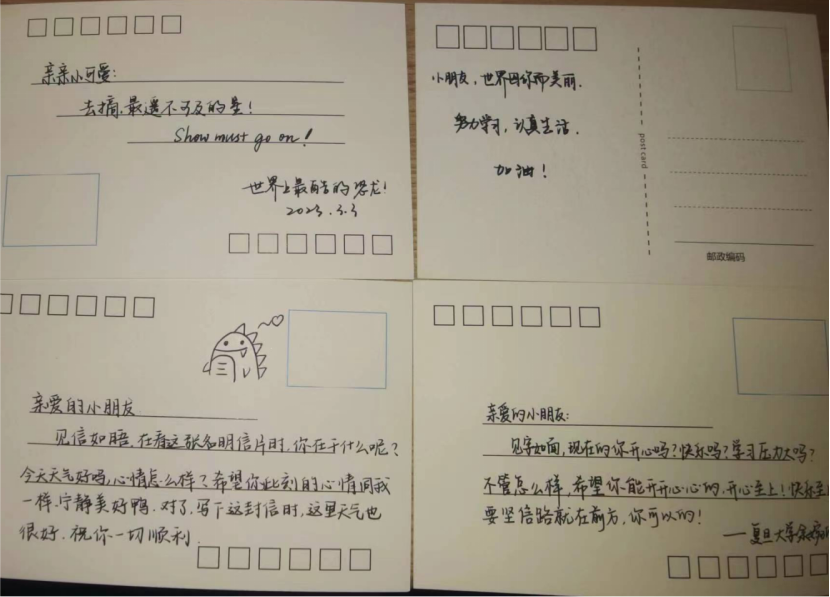 亲亲小可爱：
去摘最遥不可及的星！
Show must go on！
世界上最酷的恐龙！
2023.3.3
小朋友，世界因你而美丽.
努力学习，认真生活.
加油！
post card
邮政编码
三
亲爱的小朋友
见信如晤,在看这张名明信片时,你在干什么呢？
今天天气好吗,心情怎么样？希望你此刻的心情同我
一样.宁静美好鸭.对了,写下这封信时,这里天气也
很好.祝你一切顺利.
亲爱的小朋友：
见字如面,现在的你开心吗？快乐吗？学习压力大吗？
不管怎么样,希望你能开开心心的.开心至上！快乐至
要坚信路就在前方,你可以的！
——复旦大学